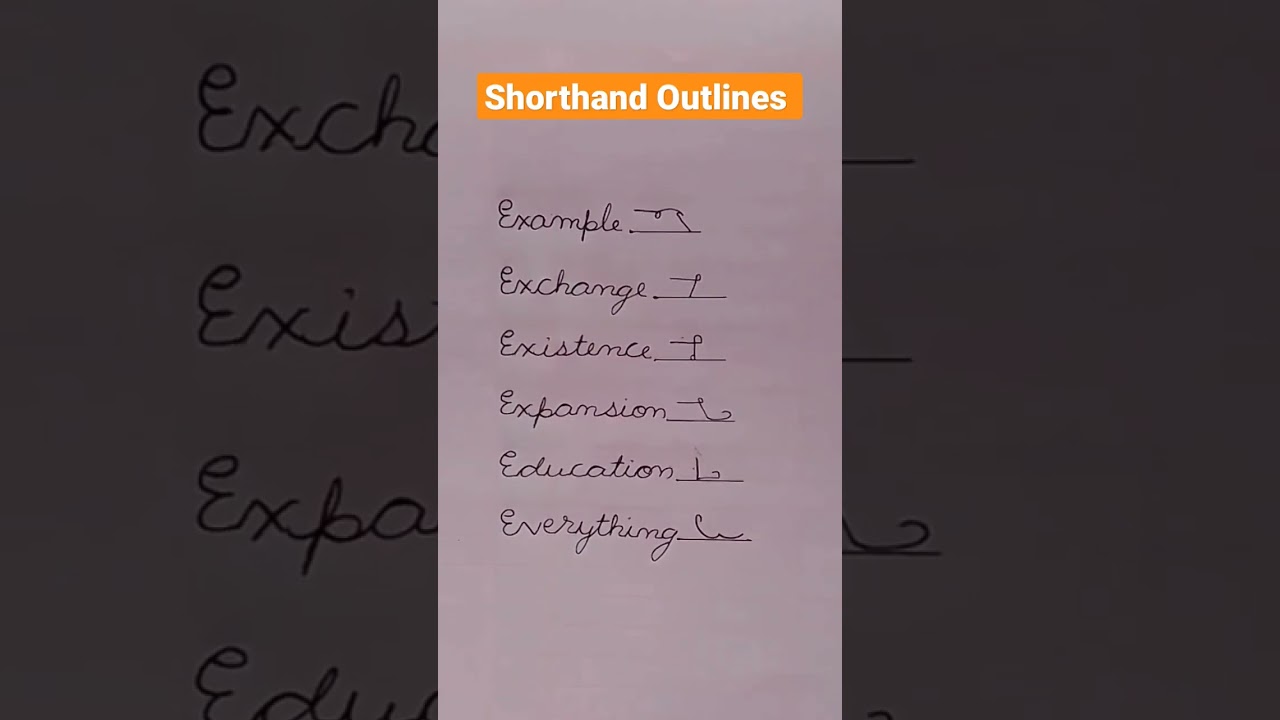 Shorthand Outlines
Example
Exchange
Existence
Expansion
Education
Everything